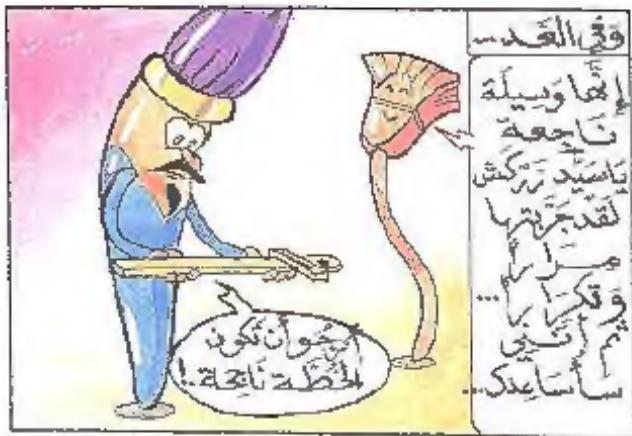 وفي الغد...
إنها وسيلة
ناجعة
يا سيد زركش
لقد جربتها
مراراً
وتكراراً...
ثم أنني
سأساعدك...
أرجو أن تكون
الخطة ناجحة..!